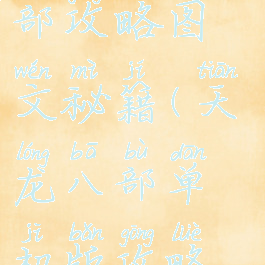 部攻略图
wén mì jí tiān
文秘籍(天
lóng bā bù dān
龙八部单
jī bǎn gōng lüè
机版攻略